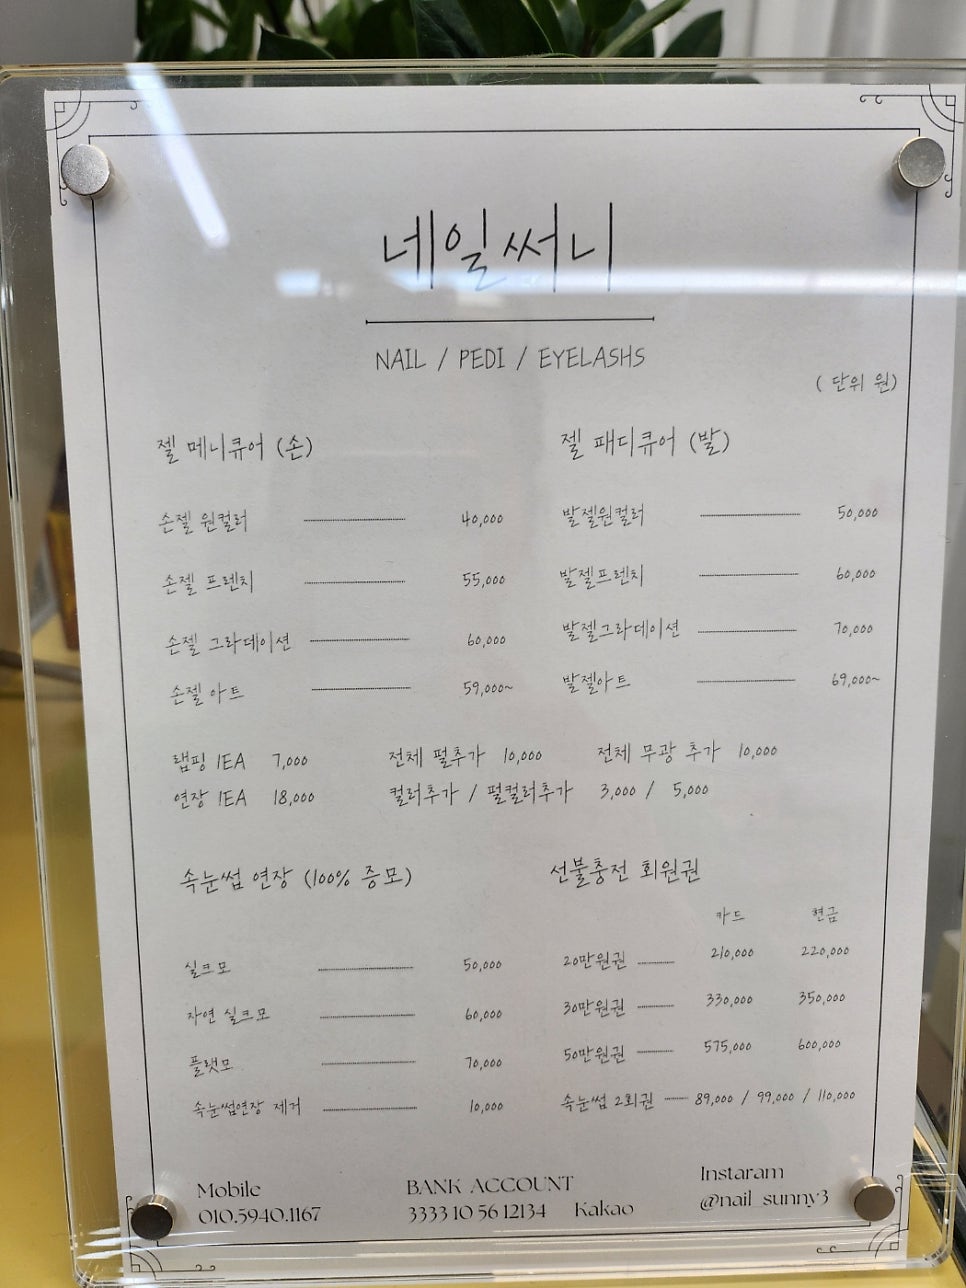 네일써니
NAIL / PEDI / EYELASHS
( 단위 원)
젤 메니큐어 (손)
손젤 원컬러 40,000
손젤 프렌치 55,000
손젤 그라데이션 60,000
손젤 아트 59,000~
젤 패디큐어 (발)
발젤원컬러 50,000
발젤프렌치 60,000
발젤그라데이션 70,000
발젤아트 69,000~
랩핑 1EA 7,000 전체 펄추가 10,000 전체 무광 추가 10,000
연장 1EA 18,000 컬러추가 / 펄컬러추가 3,000 / 5,000
속눈썹 연장 (100% 증모)
실크모 50,000
자연 실크모 60,000
플랫모 70,000
속눈썹연장 제거 10,000
선불충전 회원권
카드 현금
20만원권 210,000 220,000
30만원권 330,000 350,000
50만원권 575,000 600,000
속눈썹 2회권 89,000 / 99,000 / 110,000
Mobile
010.5940.1167
BANK ACCOUNT
3333 10 56 12134 Kakao
Instaram
@nail_sunny3